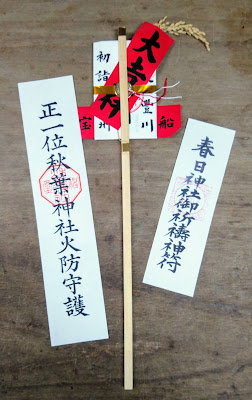 大吉
初詣
豊川
宝
船
正一位秋葉神社火防守護
春日神社御祈禱神符